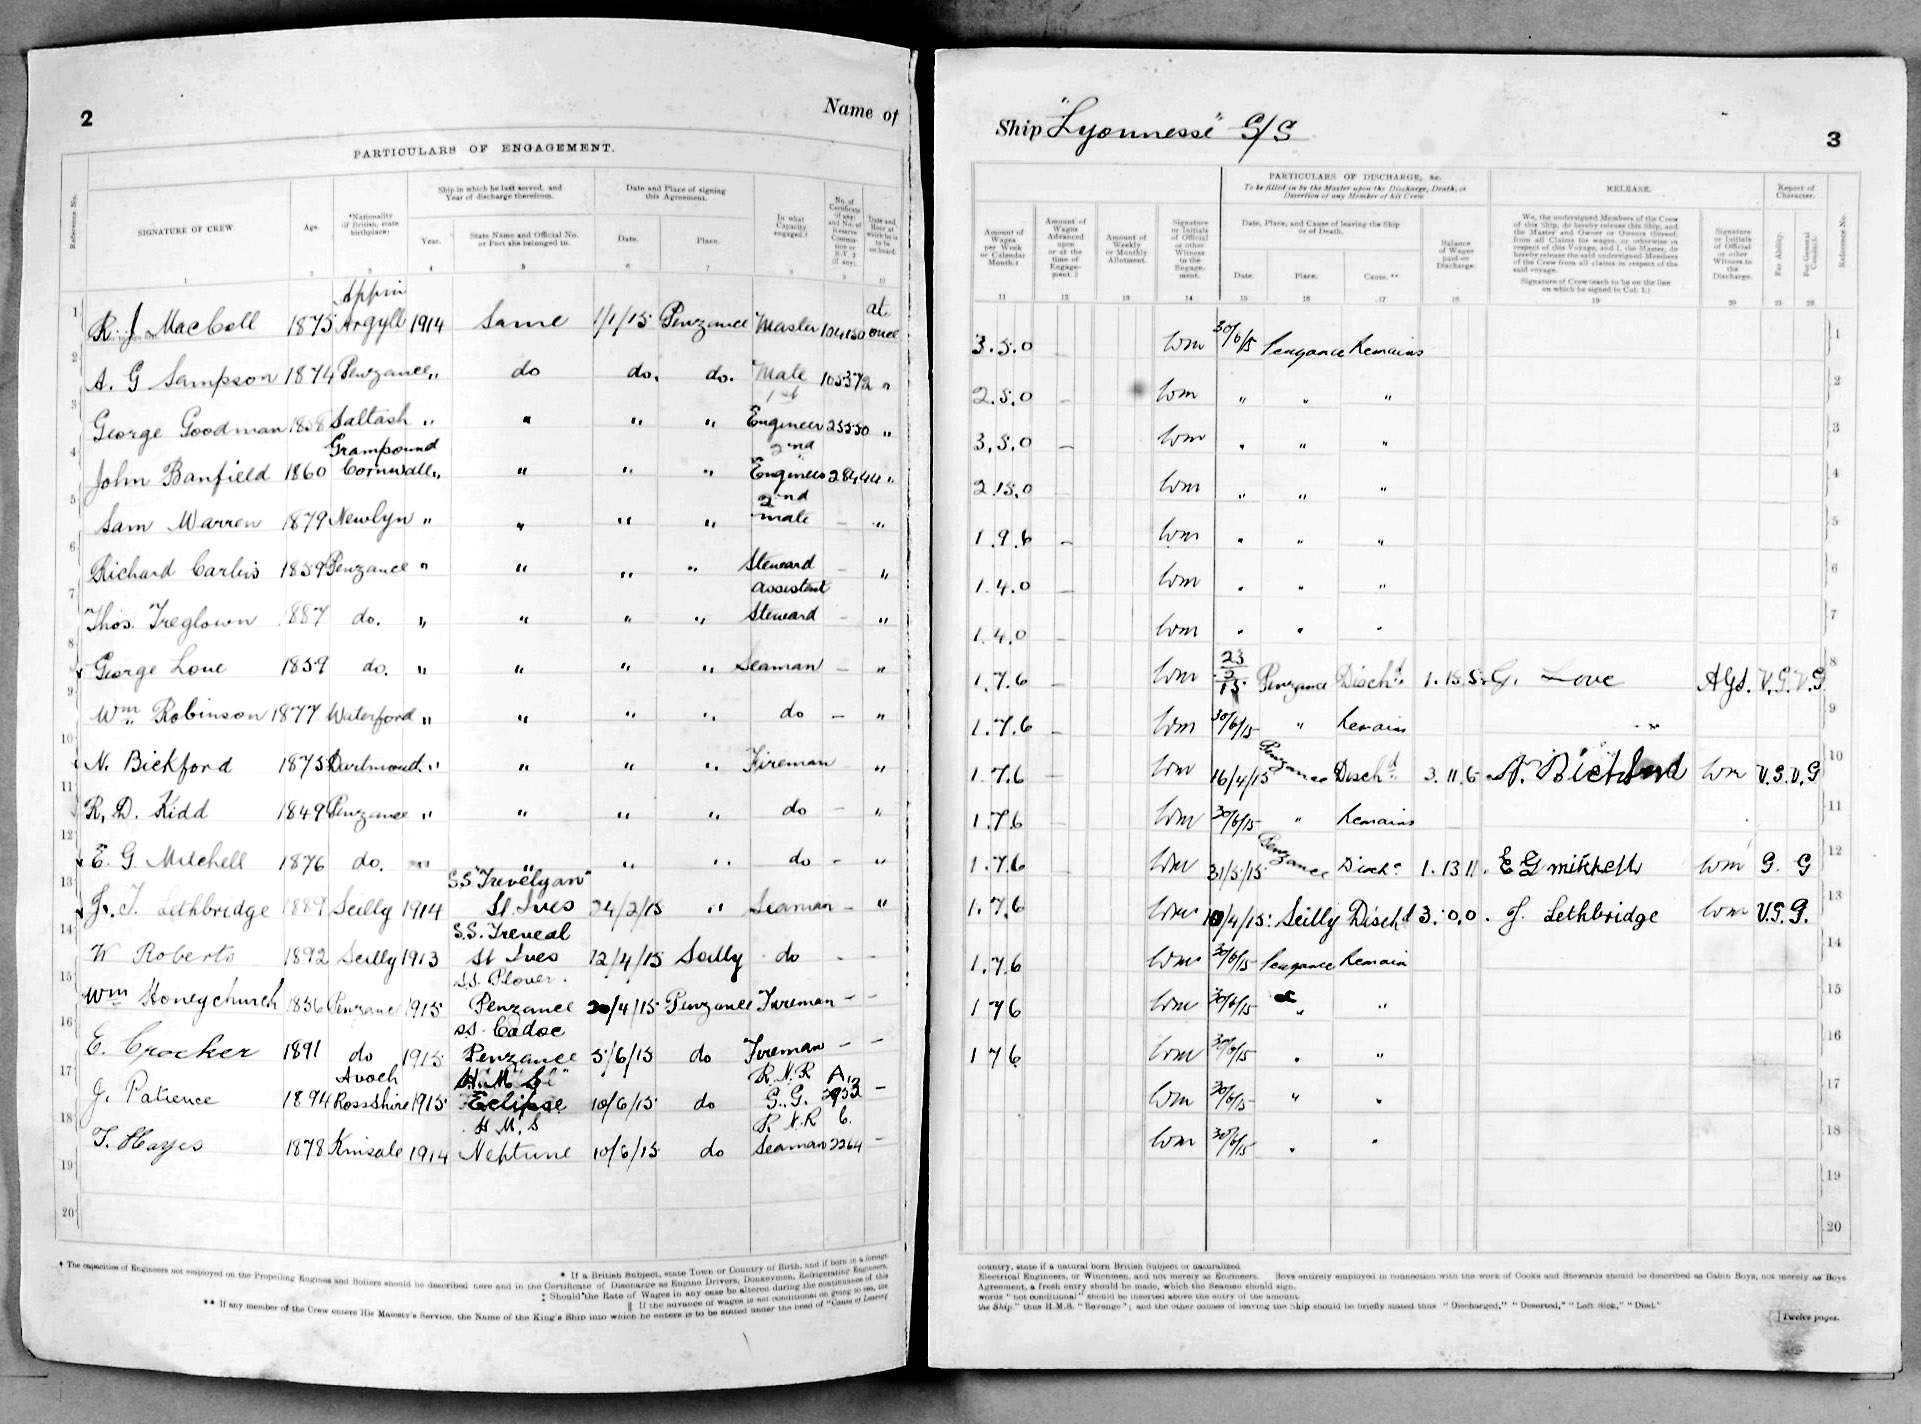 2
Name of
PARTICULARS OF ENGAGEMENT.
Reference No.
SIGNATURE OF CREW.
Age.
*Nationality (if British, state birthplace).
Ship in which he last served, and Year of discharge therefrom.
Year.
State Name and Official No. or Port she belonged to.
Date and Place of signing this Agreement.
Date.
Place.
In what Capacity engaged.†
No. of Certificate (if any) and No. of Reserve Commission or R.V. 2 (if any).
Date and Hour at which he is to be on board.
1 2 3 4 5 6 7 8 9 10
1 R. J MacColl 1875 Appin Argyll 1914 Same 1/1/15 Penzance Master 104150 at once
2 A. G Sampson 1874 Penzance " do do. do. Mate 105372 "
3 George Goodman 1858 Saltash " " " " 1st Engineer 25550 "
4 John Banfield 1860 Grampound Cornwall " " " " 2nd Engineer 28444 "
5 Sam Warren 1879 Newlyn " " " " 2nd mate - "
6 Richard Carbis 1859 Penzance " " " " Steward - "
7 Thos. Treglown 1887 do. " " " " assistent Steward - "
8 George Love 1859 do. " " " " Seaman - "
9 Wm Robinson 1877 Waterford " " " " do - "
10 N. Bickford 1875 Dartmouth " " " " Fireman "
11 R. D. Kidd 1849 Penzance " " " " do - "
12 E. G. Mitchell 1876 do. " " " do - "
13 J. T. Lethbridge 1889 Scilly 1914 S.S. "Trevelyan" St. Ives 24/2/15 " Seaman - "
14 W Roberts 1892 Scilly 1913 S.S. Treneal St Ives 12/4/15 Scilly do - -
15 Wm Honeychurch 1856 Penzance 1915 S.S. Plover. Penzance 20/4/15 Penzance Fireman - -
16 E. Crocker 1891 do 1915 SS. Cadoc Penzance 5/6/15 do Fireman - -
17 J. Patience 1894 Avoch RossShire 1915 H.M.S. Eclipse 10/6/15 do R.N.R G.G. A. -
18 T. Hayes 1878 Kinsale 1914 H.M.S Neptune 10/6/15 do R.N.R Seaman C. 2264 -
19
20
* If a British Subject, state Town or Country of Birth, and if born in a foreign
† The capacities of Engineers not employed on the Propelling Engines and Boilers should be described here and in the Certificate of Discharge as Engine Drivers, Donkeymen, Refrigerating Engineers,
‡ Should the Rate of Wages in any case be altered during the continuance of this
|| If the advance of wages is not conditional on going to sea, the
** If any member of the Crew enters His Majesty's Service, the Name of the King's Ship into which he enters is to be stated under the head of "Cause of Leaving
Ship "Lyonnesse" S/S
3
PARTICULARS OF DISCHARGE, &c.
To be filled in by the Master upon the Discharge, Death, or Desertion of any Member of his Crew
RELEASE.
Report of Character.
Amount of Wages per Week or Calendar Month.‡
Amount of Wages Advanced upon or at the time of Engagement.‡
Amount of Weekly or Monthly Allotment.
Signature or Initials of Official or other Witness to the Engagement.
Date, Place, and Cause of leaving the Ship or of Death.
Date.
Place.
Cause.**
Balance of Wages paid on Discharge.
We, the undersigned Members of the Crew of this Ship, do hereby release this Ship, and the Master and Owner or Owners thereof, from all Claims for wages, or otherwise in respect of this Voyage, and I, the Master, do hereby release the said undersigned Members of the Crew from all claims in respect of the said voyage.
Signature of Crew (each to be on the line on which he signed in Col. 1.)
Signature or Initials of Official or other Witness to the Discharge.
For Ability.
For General Conduct.
Reference No.
11 12 13 14 15 16 17 18 19 20 21 22
3.5.0 - Wm 30/6/15 Penzance Remains 1
2.5.0 - Wm " " " 2
3.5.0 - Wm " " " 3
2.15.0 Wm " " " 4
1.9.6 - Wm " " " 5
1.4.0 Wm " " " 6
1.4.0 - Wm " " " 7
1.7.6 - Wm 23/3/15 Penzance Dischd 1.15.5 G. Love AGS. V.G. V.G 8
1.7.6 - Wm 30/6/15 " Remains 9
1.7.6 - Wm 16/4/15 Penzance Dischd 3.11.6 N. Bickford Wm V.G. V.G 10
1.7.6 Wm 30/6/15 " Remains 11
1.7.6 - Wm 31/5/15 Penzance Disch 1.13.11. E G mitchell Wm G. G 12
1.7.6 Wm 10/4/15 Scilly Dischd 3.0.0. J. Lethbridge Wm V.G. G. 13
1.7.6 Wm 30/6/15 Penzance Remain 14
1 7 6 Wm 30/6/15 " " 15
1 7 6 Wm 30/6/15 " " 16
Wm 30/6/15 " " 17
Wm 30/6/15 " " 18
19
20
country, state if a natural born British Subject or naturalized.
Electrical Engineers, or Winchmen, and not merely as Engineers. Boys entirely employed in connection with the work of Cooks and Stewards should be described as Cabin Boys, not merely as Boys
Agreement, a fresh entry should be made, which the Seamen should sign.
words "not conditional" should be inserted above the entry of the amount.
the Ship." thus H.M.S. "Revenge"; and the other causes of leaving the Ship should be briefly stated thus "Discharged," "Deserted," "Left Sick," "Died."
[ ] Twelve pages.